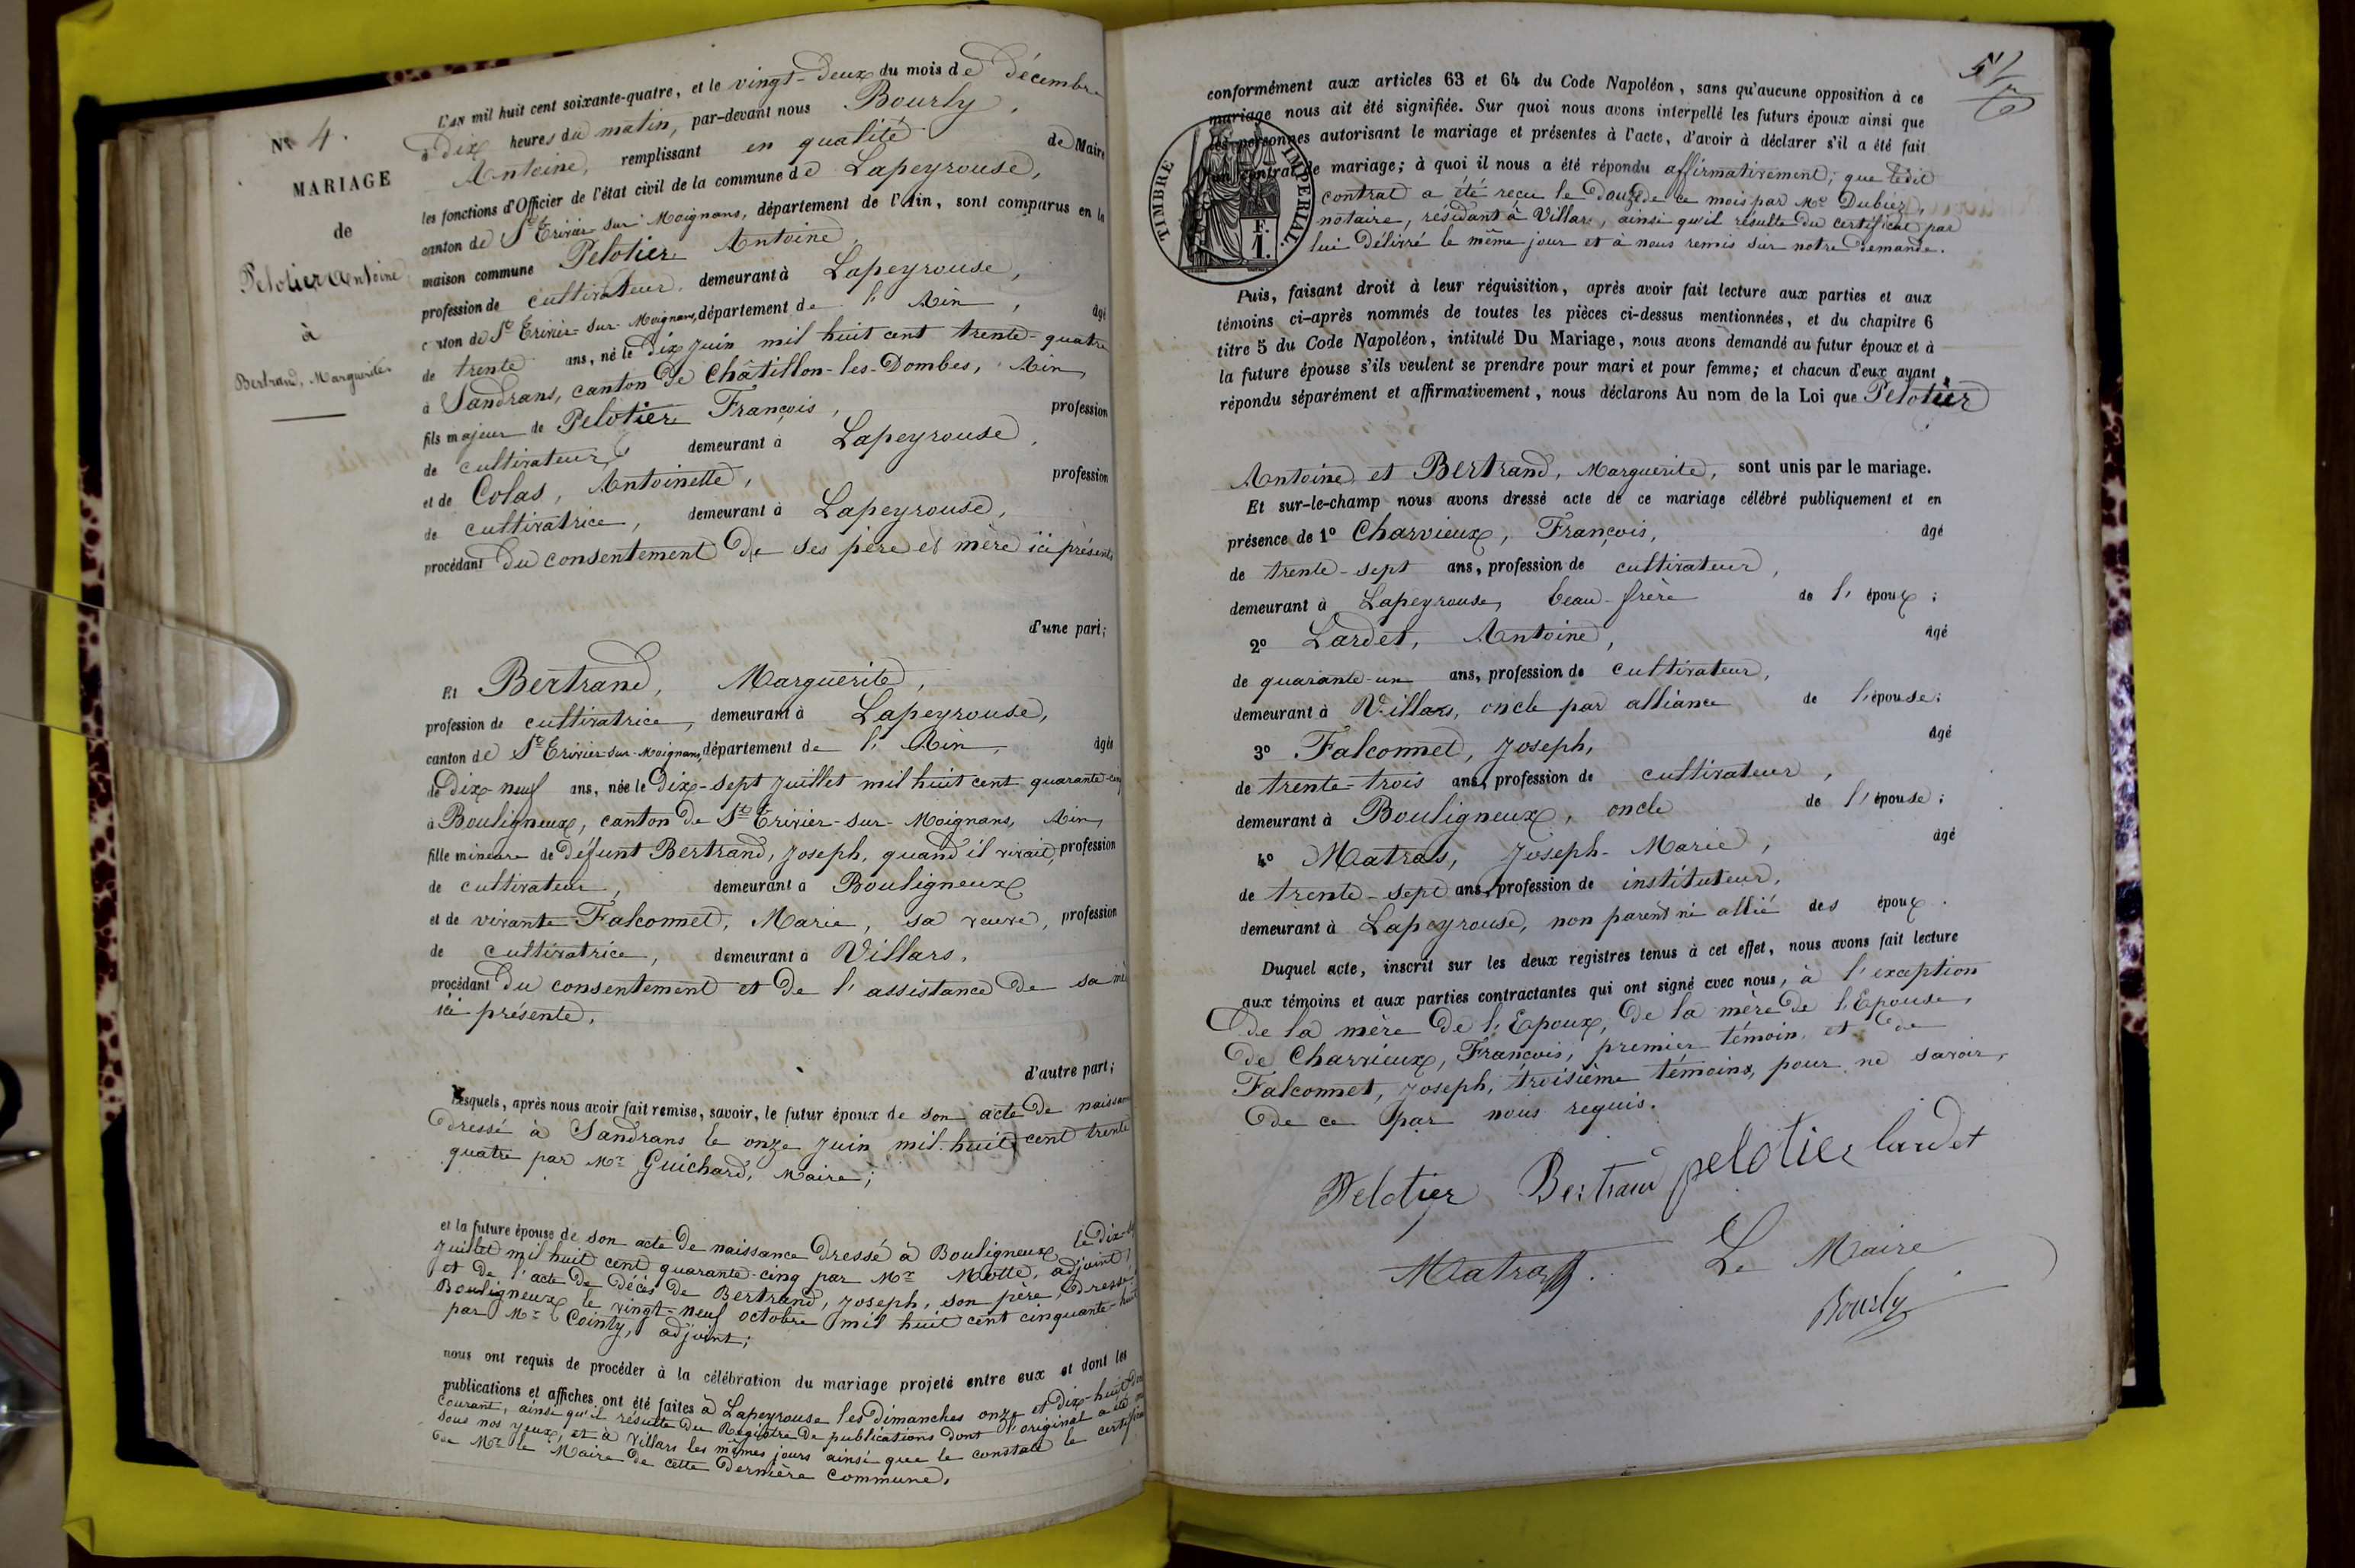 N° 4.
MARIAGE
de
Pelotier Antoine
à
Bertrand, Marguerite
L'AN mil huit cent soixante-quatre, et le vingt-deux du mois de décembre
à dix heures du matin, par-devant nous Bourly,
Antoine, remplissant en qualité de Maire
les fonctions d'Officier de l'état civil de la commune de Lapeyrouse,
canton de St Trivier sur Moignans, département de l'Ain, sont comparus en la
maison commune Pelotier Antoine,
profession de cultivateur, demeurant à Lapeyrouse,
canton de St Trivier-sur-Moignans, département de l'Ain, âgé
de trente ans, né le dix juin mil huit cent trente-quatre
à Sandrans, canton de Châtillon-les-Dombes, Ain,
fils majeur de Pelotier François, profession
de cultivateur, demeurant à Lapeyrouse,
et de Colas, Antoinette, profession
de cultivatrice, demeurant à Lapeyrouse,
procédant du consentement de ses père et mère ici présents
d'une part;
Et Bertrand, Marguerite,
profession de cultivatrice, demeurant à Lapeyrouse,
canton de St Trivier-sur-Moignans, département de l'Ain, âgée
de dix-neuf ans, née le dix-sept juillet mil huit cent quarante-cinq
à Bouligneux, canton de St Trivier-sur-Moignans, Ain,
fille mineure de défunt Bertrand, Joseph, quand il vivait, profession
de cultivateur, demeurant à Bouligneux
et de vivante Falconnet, Marie, sa veuve, profession
de cultivatrice, demeurant à Villars,
procédant du consentement et de l'assistance de sa mère
ici présente,
d'autre part;
Lesquels, après nous avoir fait remise, savoir, le futur époux de son acte de naissance
dressé à Sandrans le onze juin mil huit cent trente
quatre par Mr Guichard, Maire;
et la future épouse de son acte de naissance dressé à Bouligneux, le dix-
juillet mil huit cent quarante-cinq par Mr Motte, adjoint,
et de l'acte de décès de Bertrand, Joseph, son père, dressé
Bouligneux le vingt-neuf octobre mil huit cent cinquante-huit
par Mr Cointy, adjoint;
nous ont requis de procéder à la célébration du mariage projeté entre eux et dont les
publications et affiches ont été faites à Lapeyrouse les dimanches onze et dix-huit du
courant, ainsi qu'il résulte du Registre de publications dont l'original a été mis
sous nos yeux, et à Villars les mêmes jours ainsi que le constate le certificat
de Mr le Maire de cette dernière commune,
51
TIMBRE IMPERIAL.
F.
1.
conformément aux articles 63 et 64 du Code Napoléon, sans qu'aucune opposition à ce
mariage nous ait été signifiée. Sur quoi nous avons interpellé les futurs époux ainsi que
les personnes autorisant le mariage et présentes à l'acte, d'avoir à déclarer s'il a été fait
un contrat de mariage; à quoi il nous a été répondu affirmativement; que ledit
contrat a été reçu le douze de ce mois par Me Dubiez,
notaire, résidant à Villars, ainsi qu'il résulte du certificat par
lui délivré le même jour et à nous remis sur notre demande.
Puis, faisant droit à leur réquisition, après avoir fait lecture aux parties et aux
témoins ci-après nommés de toutes les pièces ci-dessus mentionnées, et du chapitre 6
titre 5 du Code Napoléon, intitulé Du Mariage, nous avons demandé au futur époux et à
la future épouse s'ils veulent se prendre pour mari et pour femme; et chacun d'eux ayant
répondu séparément et affirmativement, nous déclarons Au nom de la Loi que Pelotier
Antoine et Bertrand, Marguerite, sont unis par le mariage.
Et sur-le-champ nous avons dressé acte de ce mariage célébré publiquement et en
présence de 1° Charvieux, François, âgé
de trente-sept ans, profession de cultivateur,
demeurant à Lapeyrouse, beau-frère de l'époux;
2° Lardet, Antoine, âgé
de quarante-un ans, profession de cultivateur,
demeurant à Villars, oncle par alliance de l'épouse;
3° Falconnet, Joseph, âgé
de trente-trois ans, profession de cultivateur,
demeurant à Bouligneux, oncle de l'épouse;
4° Matras, Joseph-Marie, âgé
de trente-sept ans, profession de instituteur,
demeurant à Lapeyrouse, non parent ni allié des époux.
Duquel acte, inscrit sur les deux registres tenus à cet effet, nous avons fait lecture
aux témoins et aux parties contractantes qui ont signé avec nous, à l'exception
de la mère de l'Epoux, de la mère de l'Epouse,
de Charvieux, François, premier témoin, et de
Falconnet, Joseph, troisième témoins, pour ne savoir,
de ce par nous requis.
Pelotier Bertrand pelotier lardet
Matras. Le Maire
Bourly